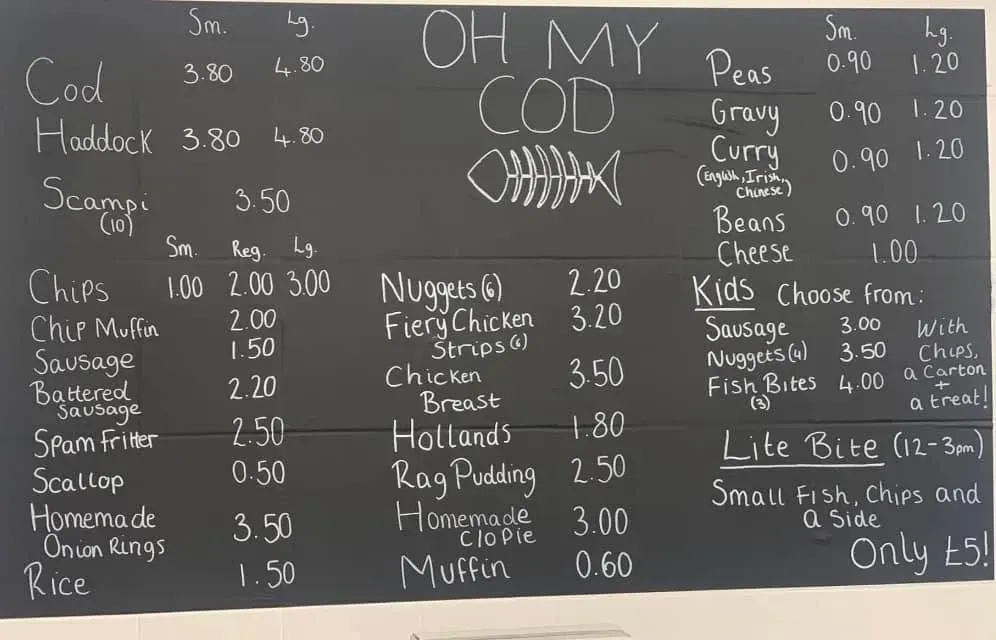 OH MY
COD
Sm. Lg.
Cod 3.80 4.80
Haddock 3.80 4.80
Scampi 3.50
(10)
Sm. Reg. Lg.
Chips 1.00 2.00 3.00
Chip Muffin 2.00
Sausage 1.50
Battered 2.20
Sausage
Spam Fritter 2.50
Scallop 0.50
Homemade 3.50
Onion Rings
Rice 1.50
Nuggets (6) 2.20
Fiery Chicken 3.20
Strips (6)
Chicken 3.50
Breast
Hollands 1.80
Rag Pudding 2.50
Homemade 3.00
Clo Pie
Muffin 0.60
Sm. Lg.
Peas 0.90 1.20
Gravy 0.90 1.20
Curry 0.90 1.20
(English, Irish,
Chinese)
Beans 0.90 1.20
Cheese 1.00
Kids Choose from:
Sausage 3.00 With
Nuggets (4) 3.50 Chips,
Fish Bites 4.00 a Carton
(3) +
a treat!
Lite Bite (12-3pm)
Small Fish, Chips and
a Side
Only £5!